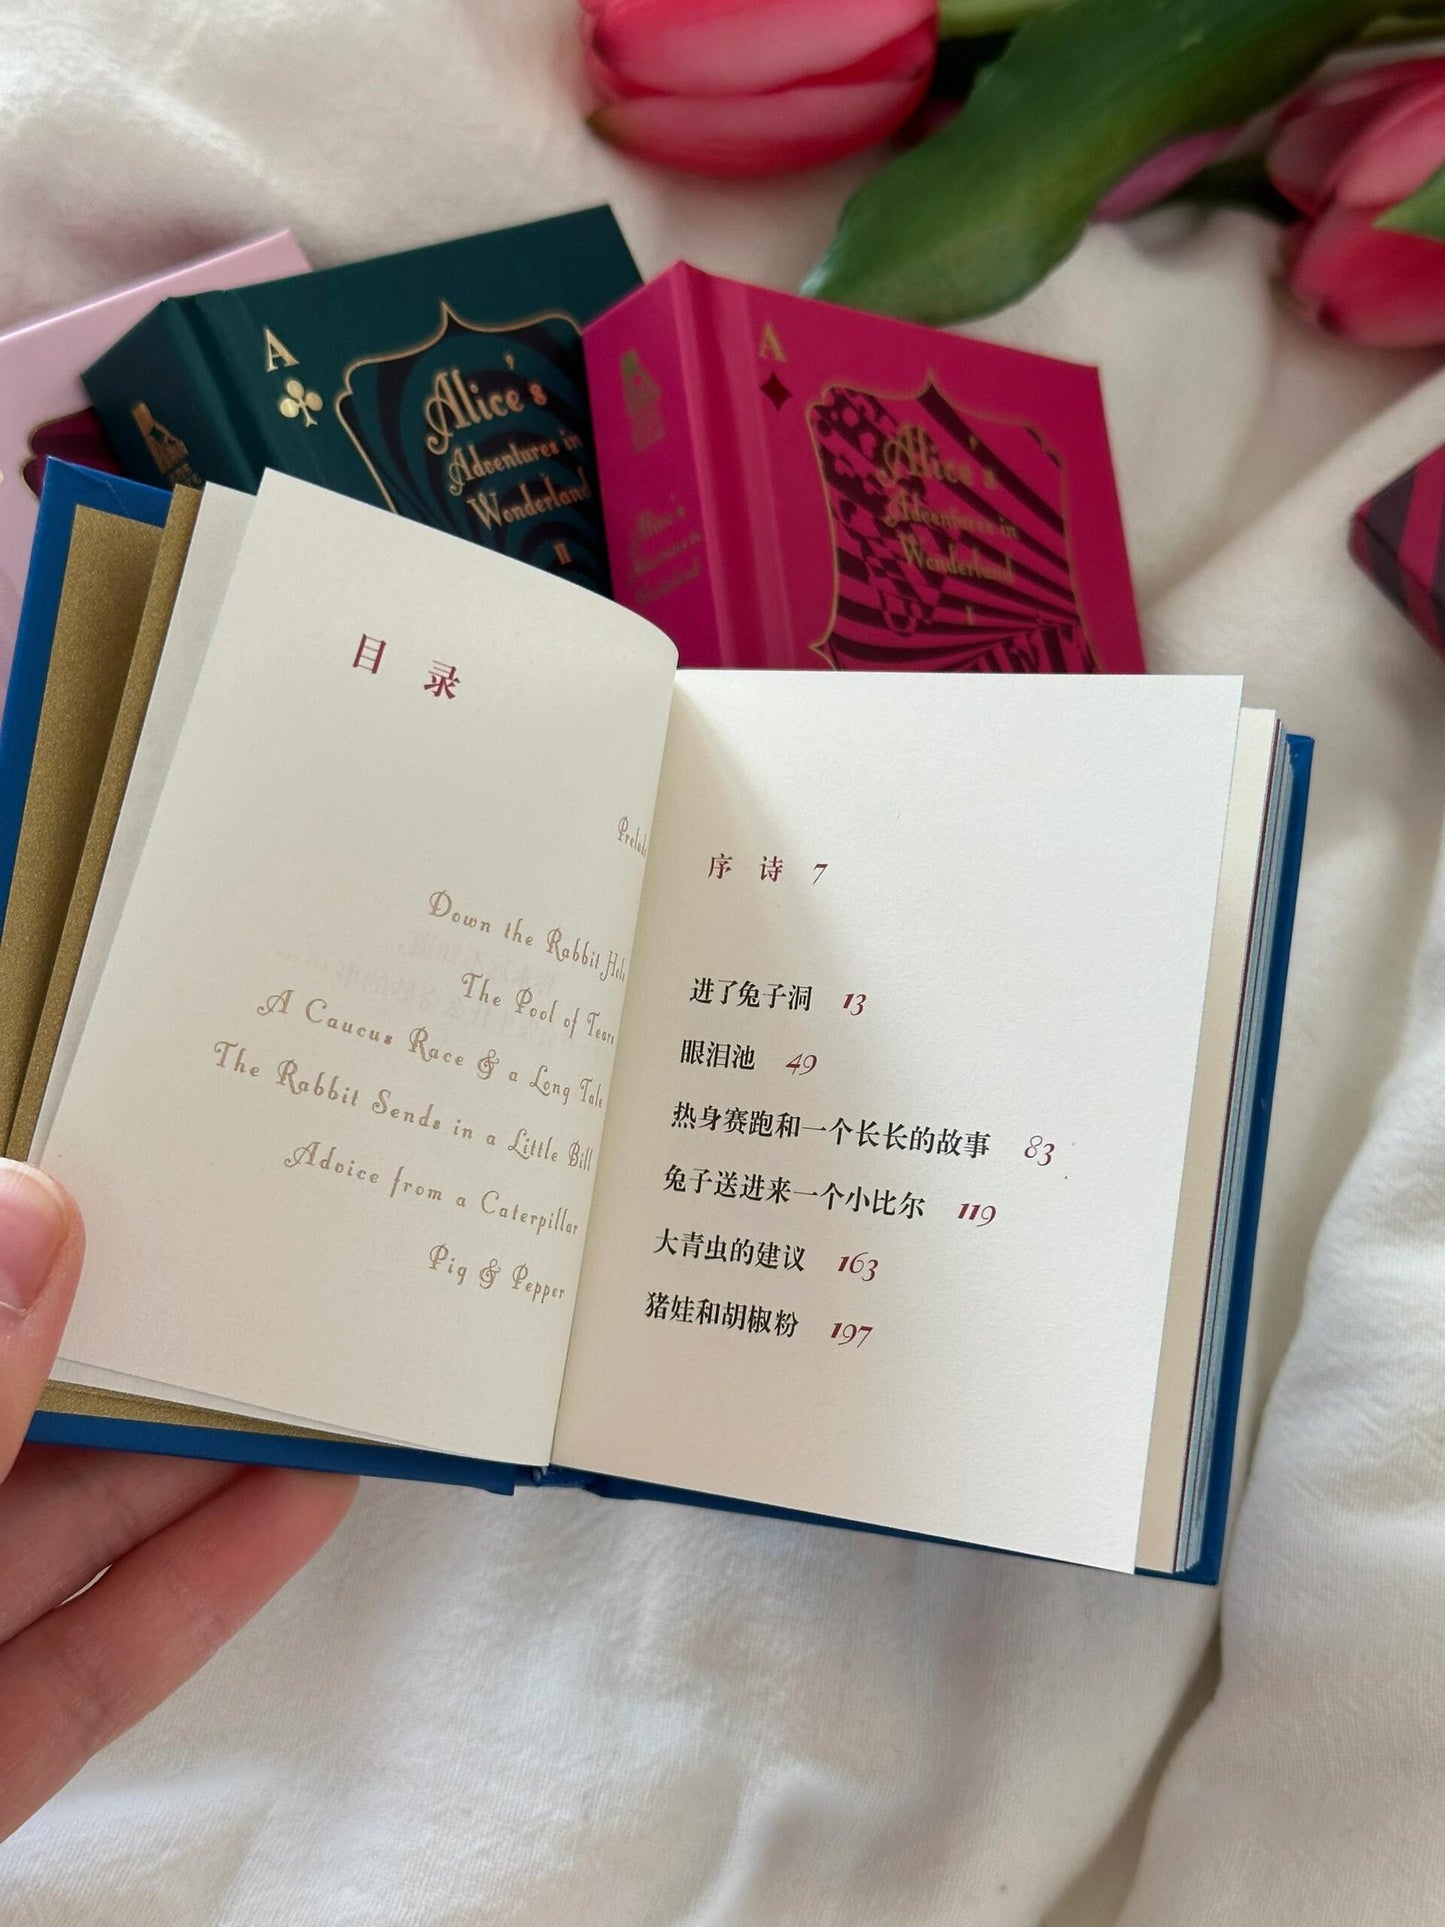 A
Alice's
Adventures in
Wonderland
II
A
Alice's
Adventures in
Wonderland
I
Alice's
Adventures in
Wonderland
目录
Down the Rabbit Hole
The Pool of Tears
A Caucus Race & a Long Tale
The Rabbit Sends in a Little Bill
Advice from a Caterpillar
Pig & Pepper
序诗 7
进了兔子洞 13
眼泪池 49
热身赛跑和一个长长的故事 83
兔子送进来一个小比尔 119
大青虫的建议 163
猪娃和胡椒粉 197